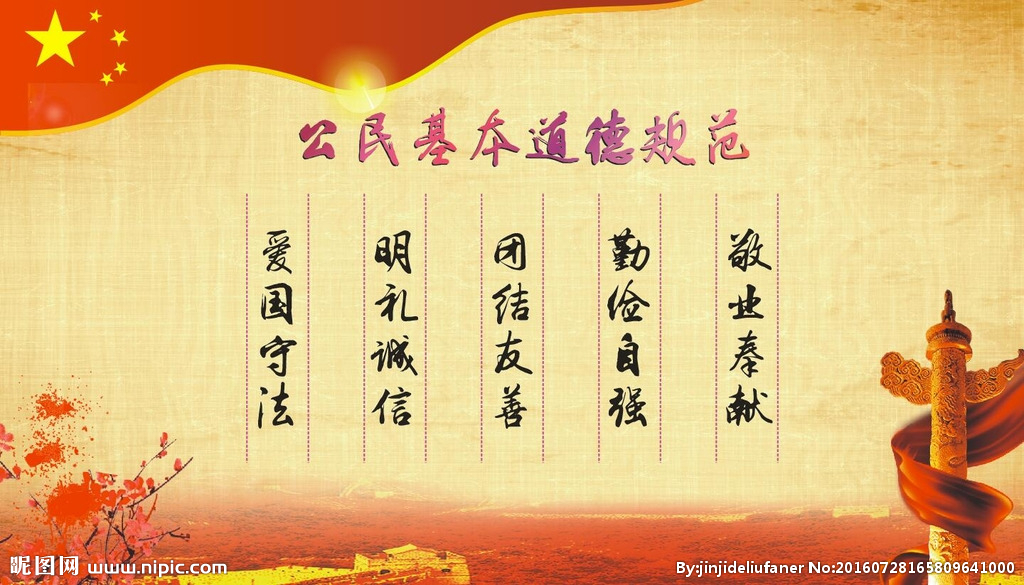 公民基本道德规范
爱国守法
明礼诚信
团结友善
勤俭自强
敬业奉献
昵图网 www.nipic.com
By:jinjideliufaner No:20160728165809641000